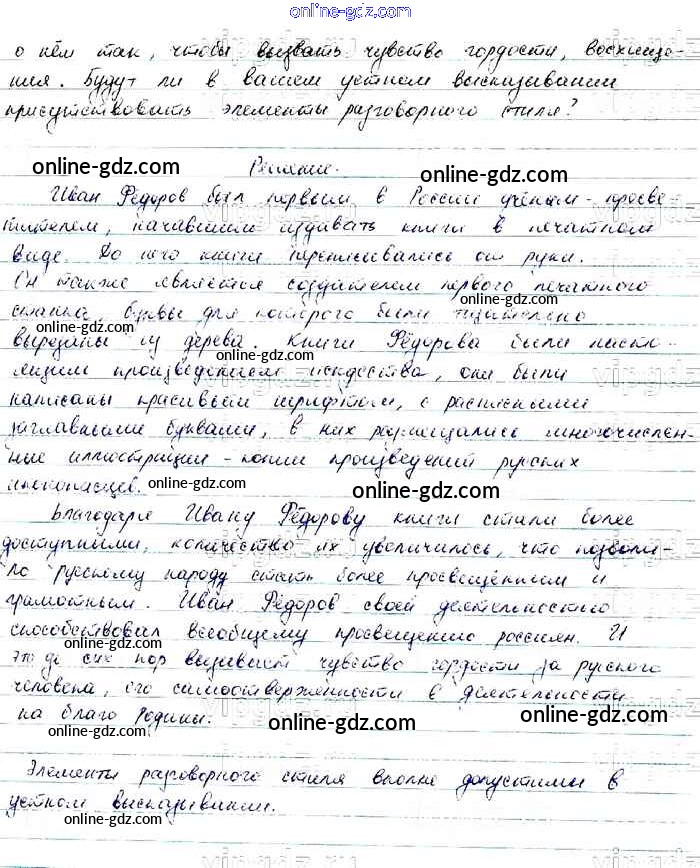 online-gdz.com
о нём так, чтобы вызвать чувство гордости, восхище-
ния. Будут ли в вашем устном высказывании
присутствовать элементы разговорного стиля?
online-gdz.com
Решение.
online-gdz.com
Иван Фёдоров был первым в России учёным-просве-
тителем, начавшим издавать книги в печатном
виде. До него книги переписывались от руки.
Он также является создателем первого печатного
станка, буквы для которого были тщательно
online-gdz.com
online-gdz.com
вырезаны из дерева. Книги Фёдорова были насто-
online-gdz.com
ящим произведением искусства, они были
написаны красивым шрифтом, с расписными
заглавными буквами, в них размещались многочислен-
ные иллюстрации - копии произведений русских
иконописцев.
online-gdz.com
online-gdz.com
Благодаря Ивану Фёдорову книги стали более
доступными, количество их увеличилось, что позволи-
ло русскому народу стать более просвещённым и
грамотным. Иван Фёдоров своей деятельностью
способствовал всеобщему просвещению россиян. И
это до сих пор вызывает чувство гордости за русского
человека, его самоотверженности в деятельности
на благо Родины.
online-gdz.com
online-gdz.com
online-gdz.com
Элементы разговорного стиля вполне допустимы в
устном высказывании.
online-gdz.com
online-gdz.com
vipgdz.ru